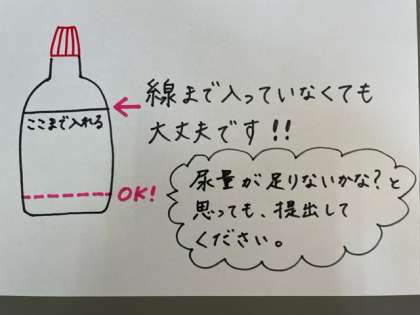 線まで入っていなくても
大丈夫です!!
ここまで入れる
OK!
尿量が足りないかな?と
思っても、提出して
ください。